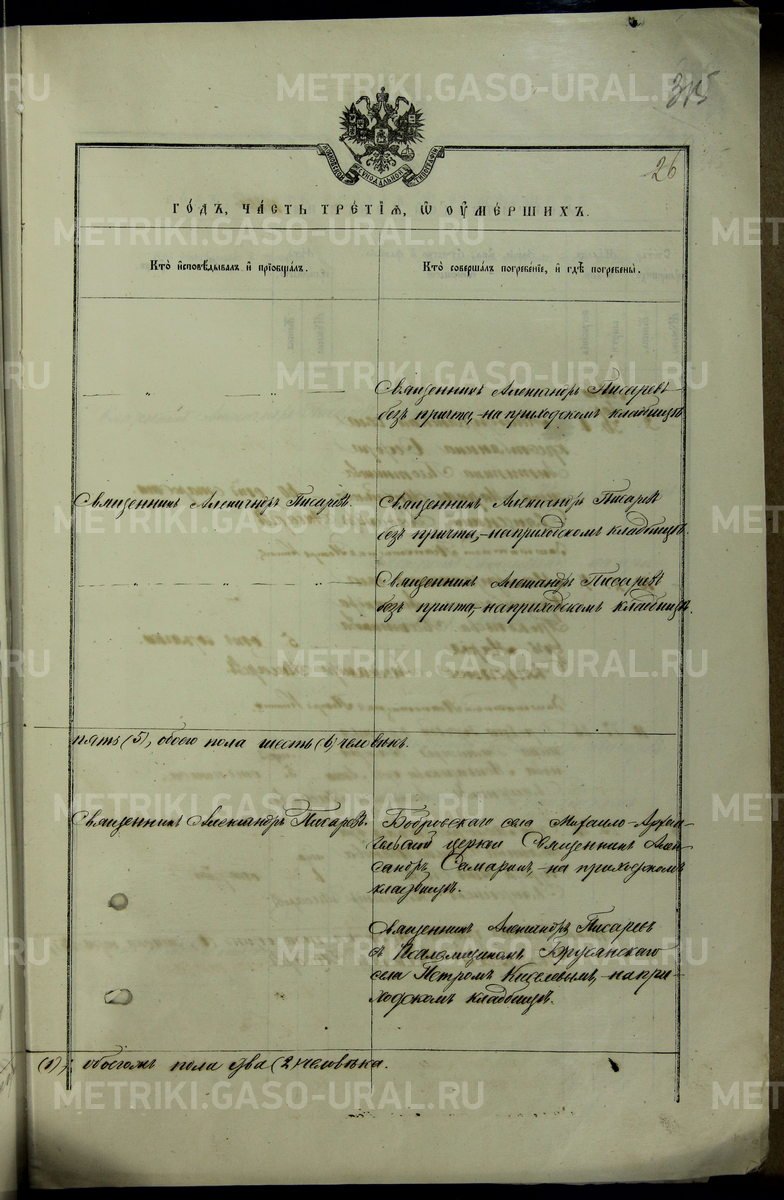 METRIKI.GASO-URAL.RU
315
МОСКОВСКОЙ СѴНОДАЛЬНОЙ ТИПОГРАФІИ
26
ГО́ДЪ, ЧА́СТЬ ТРЕ́ТІѦ, Ѡ҆ ОУ҆МЕ́РШИХЪ.
Кто̀ и҆сповѣ́дывалъ и҆ прїѻбща́лъ.
Кто̀ соверша́лъ погребе́нїе, и҆ гдѣ̀ погребены̀.
Священникъ Александръ Писаревъ
безъ причта,-на приходскомъ кладбищѣ
Священникъ Александръ Писаревъ.
Священникъ Александръ Писаревъ
безъ причта,-на приходскомъ кладбищѣ.
Священникъ Александръ Писаревъ
безъ причта,-на приходскомъ кладбищѣ.
пять (5), обоего пола шесть (6) человѣкъ.
Священникъ Александръ Писаревъ.
Бобровскаго села Михаило-Архан-
гельской церкви Священникъ Алек-
сандръ Самаринъ,-на приходскомъ
кладбищѣ.
Священникъ Александръ Писаревъ
съ Псаломщикомъ Брусянскаго
села Петромъ Киселевымъ,-на при-
ходскомъ кладбищѣ.
(1), обоего пола два (2) человѣка.